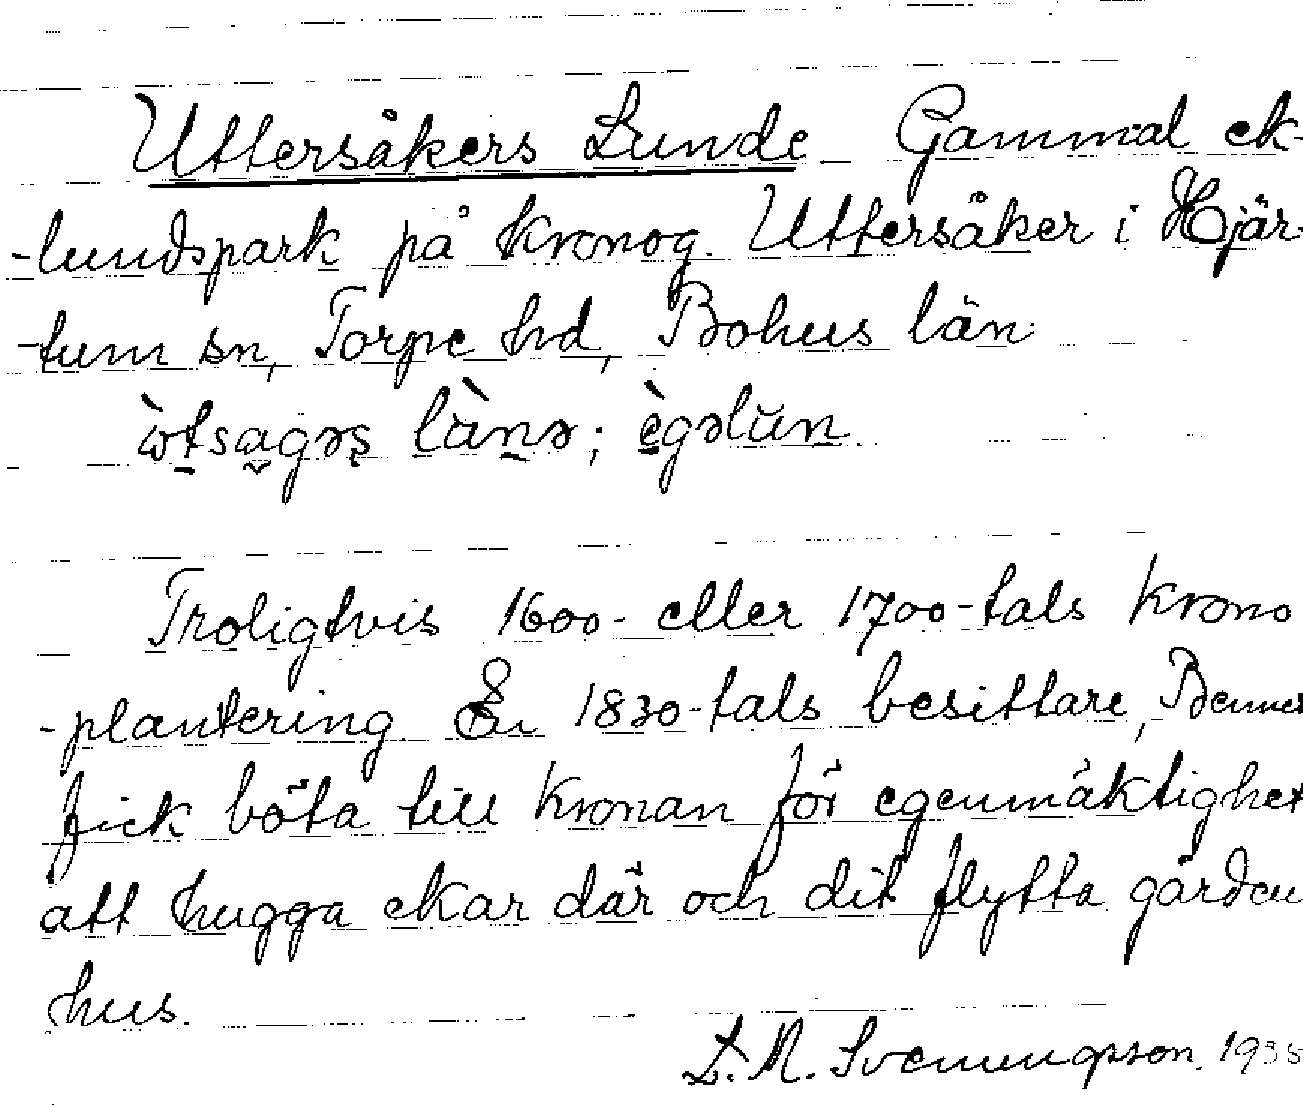 Uttersåkers Lunde Gammal ek-
-lundspark på kronog. Uttersåker i Hjär-
-tum sn, Torpe hd, Bohus län
ẁt̠sa̬gəş lànə; ègəlŭn
Troligtvis 1600- eller 1700-tals krono
-plantering En 1830-tals besittare, Benner
fick böta till Kronan för egenmäktighet
att hugga ekar där och dit flytta gården
hus.
D. M. Svenungsson. 1935